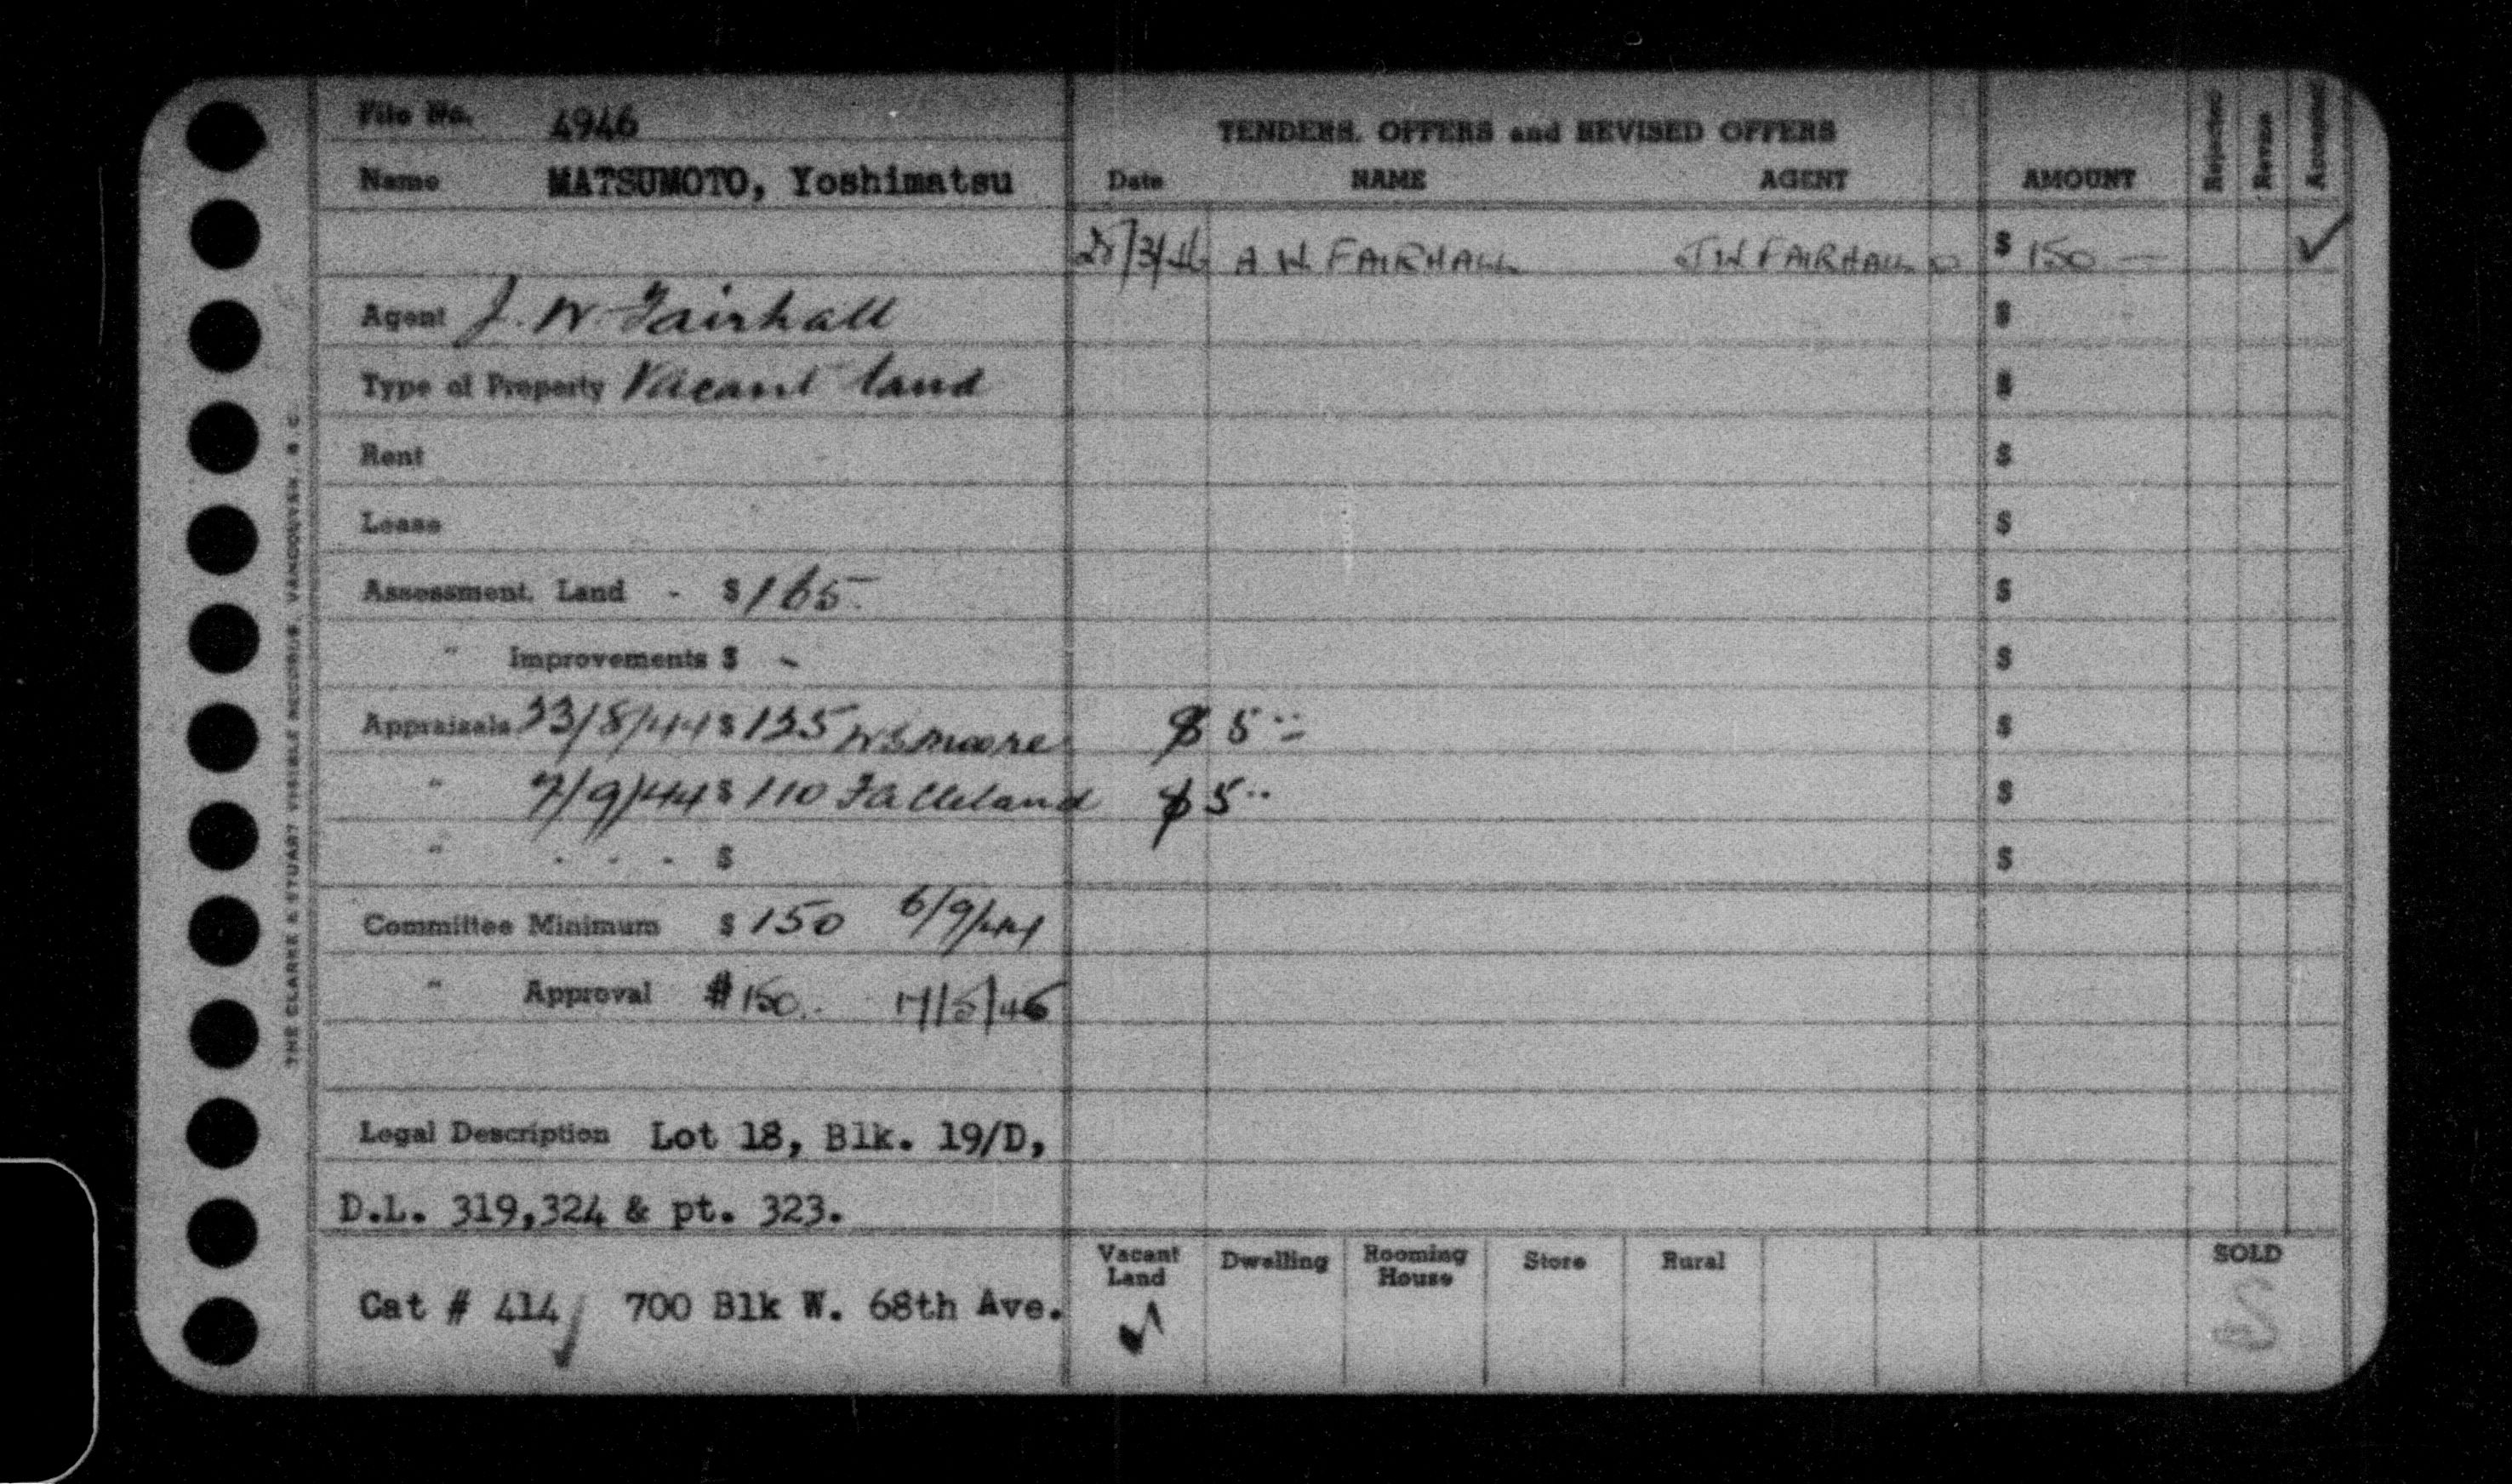 File No. 4946
Name MATSUMOTO, Yoshimatsu
Agent J. W. Fairhall
Type of Property Vacant land
Rent
Lease
Assessment. Land - $ 165.
" Improvements $ -
Appraisals 23/8/44 $ 135 W S Moore $ 5
" 7/9/44 $ 110 $ 5
" - - - $
Committee Minimum $ 150 6/9/44
" Approval $ 150
Legal Description Lot 18, Blk. 19/D,
D.L. 319,324 & pt. 323.
Cat # 414 700 Blk W. 68th Ave.
TENDERS. OFFERS and REVISED OFFERS
Date NAME AGENT AMOUNT Rejected Revise Accepted
A W FAIRHALL J W FAIRHALL $ 150 — ✓
$
$
$
$
$
$
$
$
$
Vacant Land Dwelling Rooming House Store Rural SOLD
✓
THE CLARKE & STUART VISIBLE RECORDS, VANCOUVER, B C